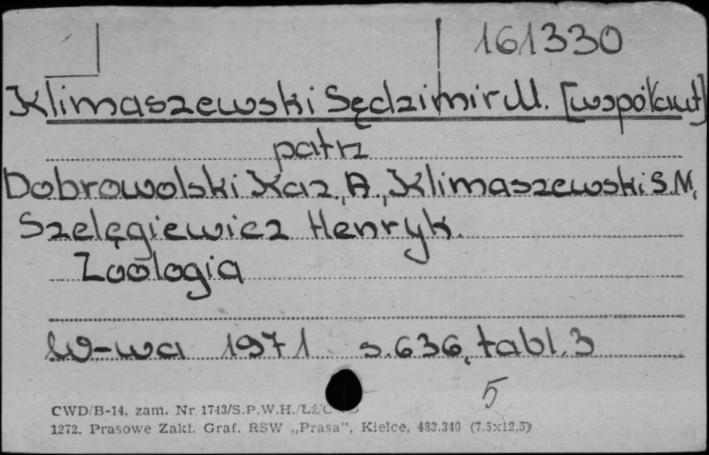 161330
Klimaszewski Sędzimir M. [współaut]
patrz
Dobrowolski Kaz. A., Klimaszewski S.M,
Szelęgiewicz Henryk.
Zoologia
W-wa 1971 s.636, tabl.3
5
CWD/B-14, zam. Nr 1743/S.P.W.H./Łź/
1272. Prasowe Zakł. Graf. RSW „Prasa”, Kielce, 483.340 (7,5x12,5)